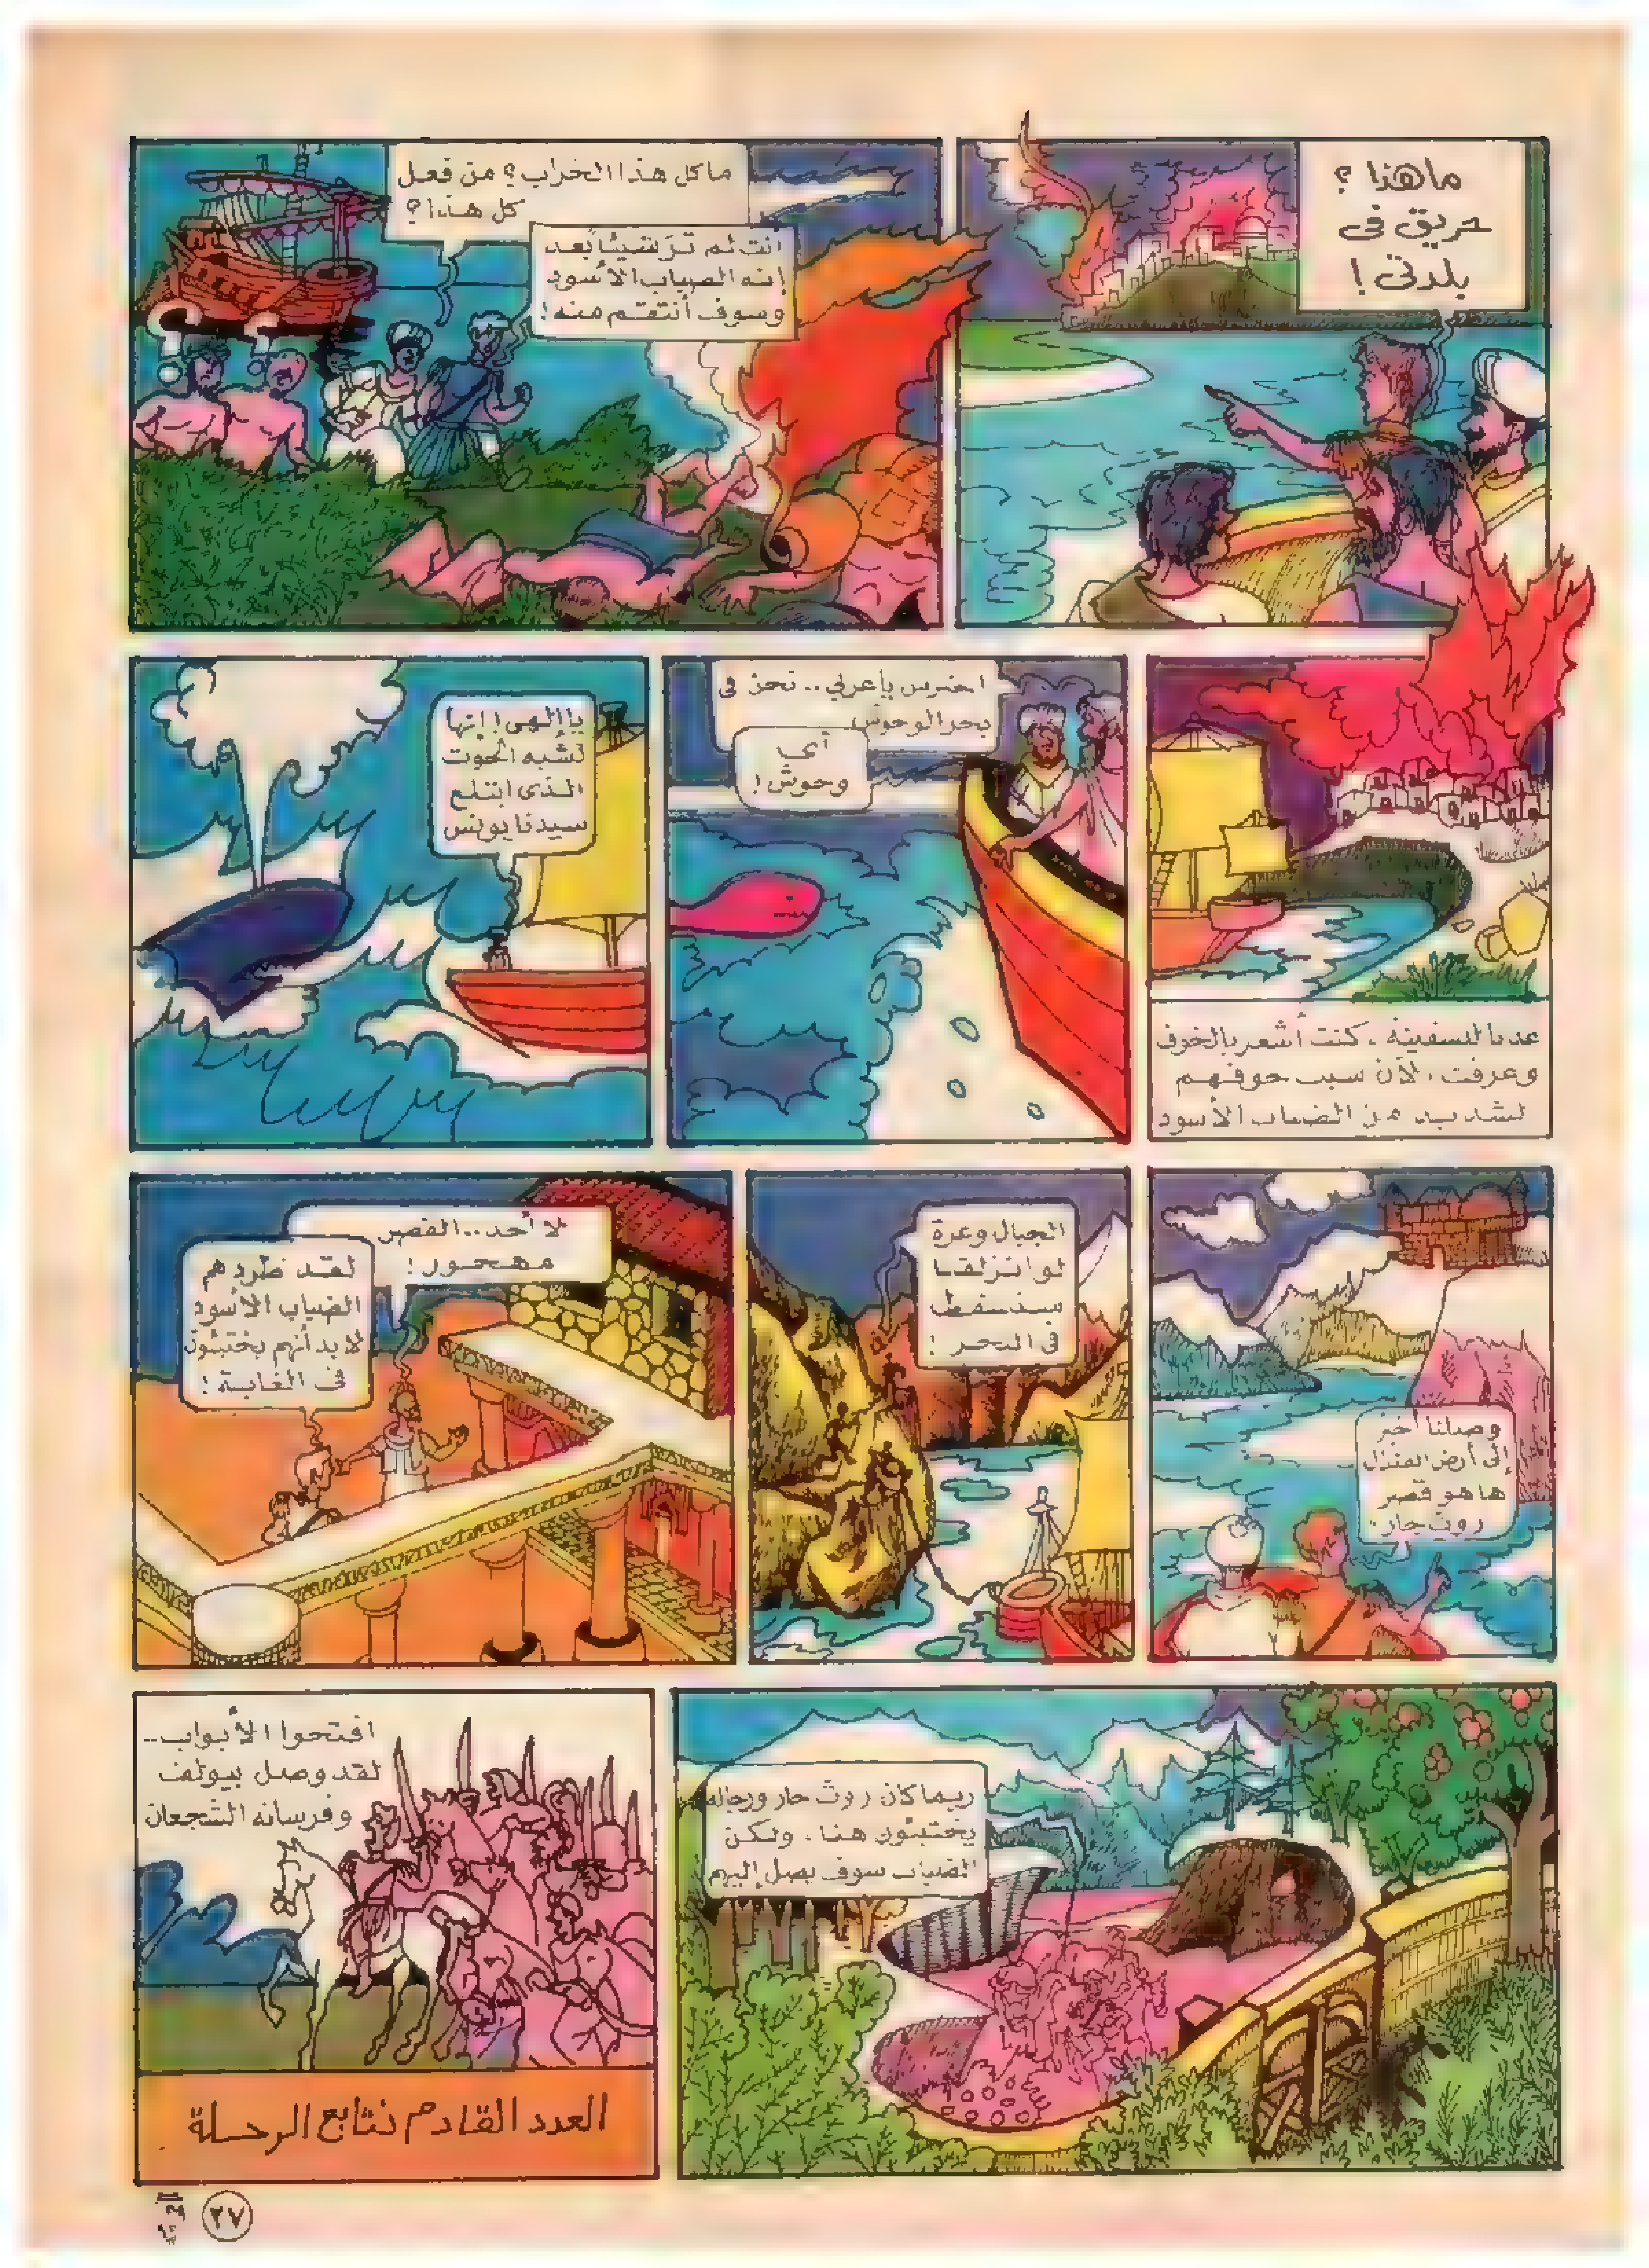 ما هذا ؟
حريق فى
بلدتى !
ما كل هذا الخراب ؟ من فعل
كل هذا ؟
أنت لم ترَ شيئًا بعد
إنه الضباب الأسود
وسوف أنتقم منه !
عدنا للسفينة ، كنت أشعر بالخوف
وعرفت الآن سبب خوفهم
لشديد من الضباب الأسود
احترس يا عربي .. نحن فى
بحر الوحوش
أى
وحوش !
يا إلهى ! إنها
تشبه الحوت
الذى ابتلع
سيدنا يونس
وصلنا أخيرًا
إلى أرض
ها هو قصر
روث جار ..
الجبال وعرة
لو انزلقنا
سنسقط
فى البحر !
لا أحد .. القصر
مهجور !
لقد طردهم
الضباب الأسود
لابد أنهم يختبئون
فى الغابة !
ربما كان روث جار ورجاله
يختبئون هنا . ولكن
الضباب سوف يصل إليهم
افتحوا الأبواب ..
لقد وصل بيولف
وفرسانه الشجعان
العدد القادم نتابع الرحلة
٢٧